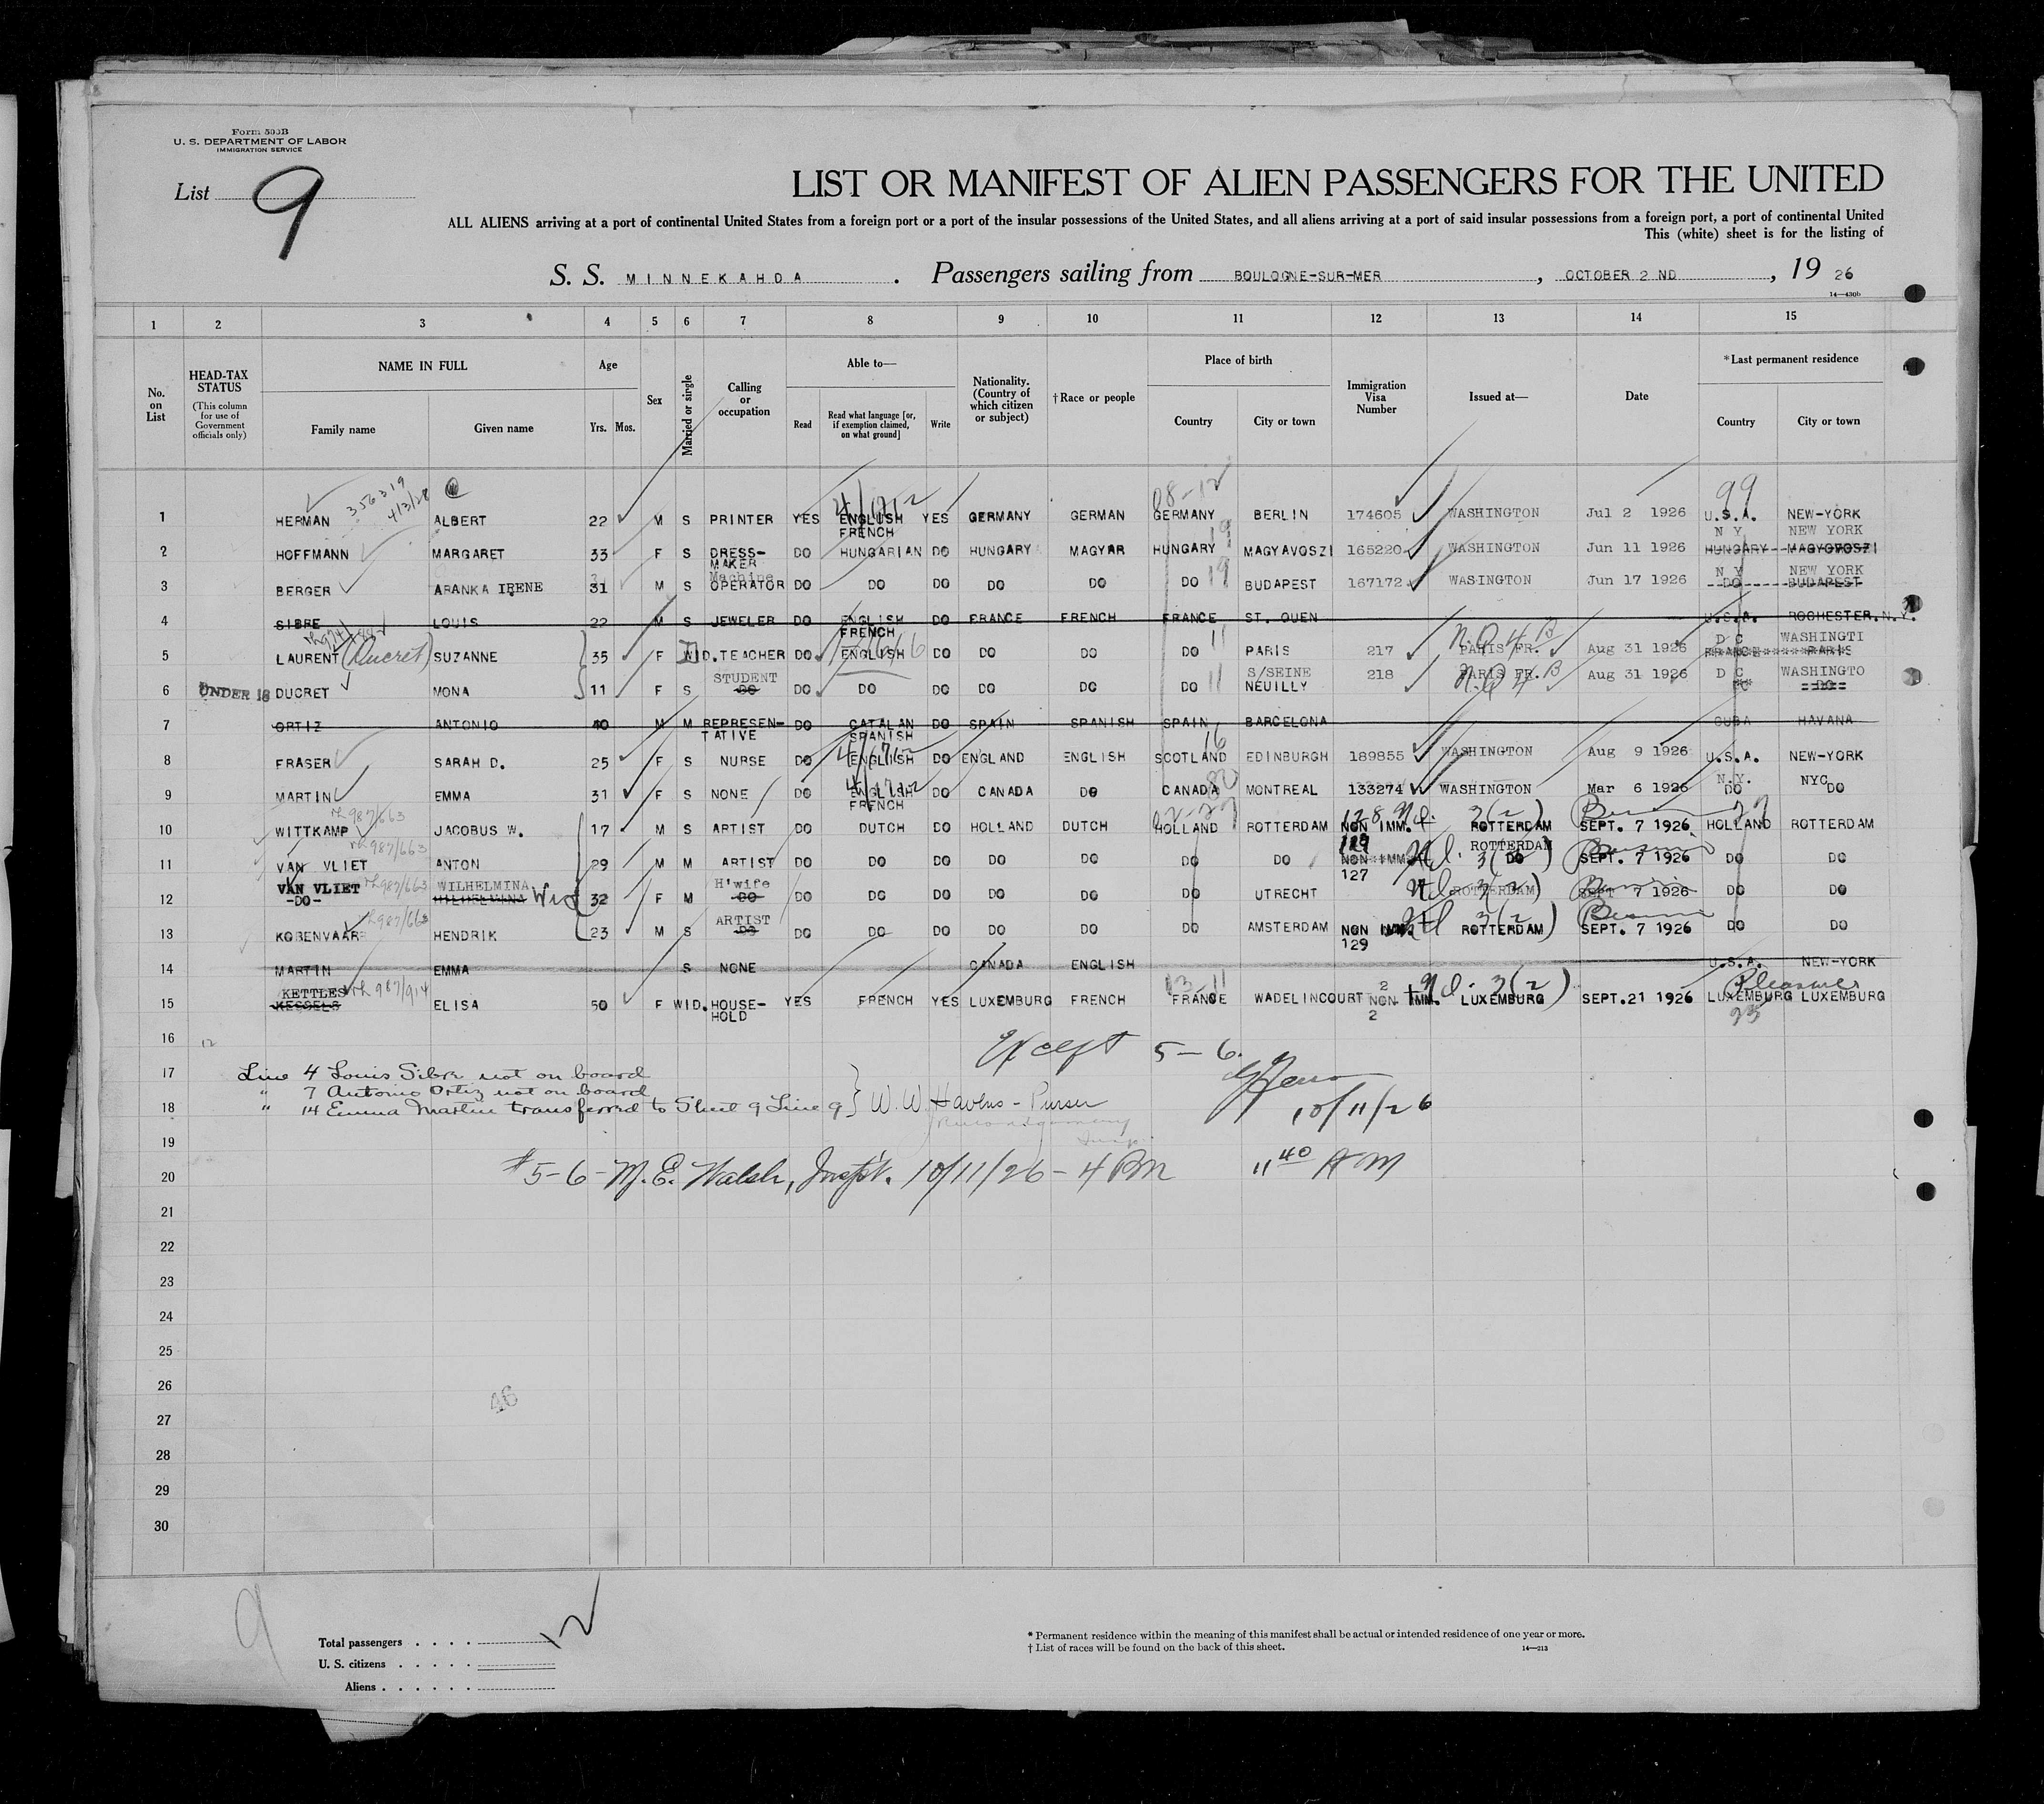 Form 500B
U. S. DEPARTMENT OF LABOR
IMMIGRATION SERVICE
List 9
LIST OR MANIFEST OF ALIEN PASSENGERS FOR THE UNITED
ALL ALIENS arriving at a port of continental United States from a foreign port or a port of the insular possessions of the United States, and all aliens arriving at a port of said insular possessions from a foreign port, a port of continental United
This (white) sheet is for the listing of
S. S. MINNEKAHDA. Passengers sailing from BOULOGNE-SUR-MER, OCTOBER 2 ND, 19 26
14—430b
1 2 3 4 5 6 7 8 9 10 11 12 13 14 15
No. on List
HEAD-TAX STATUS (This column for use of Government officials only)
NAME IN FULL Family name Given name
Age Yrs. Mos.
Sex
Married or single
Calling or occupation
Able to— Read Read what language [or, if exemption claimed, on what ground] Write
Nationality. (Country of which citizen or subject)
†Race or people
Place of birth Country City or town
Immigration Visa Number
Issued at—
Date
*Last permanent residence Country City or town
356319 4/3/28 08-12 99
1 HERMAN ALBERT 22 M S PRINTER YES ENGLISH YES GERMANY GERMAN GERMANY BERLIN 174605 WASHINGTON Jul 2 1926 U.S.A. NEW-YORK
FRENCH 19 N Y NEW YORK
2 HOFFMANN MARGARET 33 F S DRESS-MAKER DO HUNGARIAN DO HUNGARY MAGYAR HUNGARY MAGYAVOSZI 165220 WASHINGTON Jun 11 1926 HUNGARY MAGYOVOSZI
Machine 19 N Y NEW YORK
3 BERGER ARANKA IRENE 31 M S OPERATOR DO DO DO DO DO DO BUDAPEST 167172 WASINGTON Jun 17 1926 DO BUDAPEST
4 SIBRE LOUIS 22 M S JEWELER DO ENGLISH DO FRANCE FRENCH FRANCE ST. OUEN U.S.A. ROCHESTER.N.Y.
FRENCH 11 N.Q 4 B D C WASHINGTI
5 LAURENT (Ducret) SUZANNE 35 F WID. TEACHER DO ENGLISH DO DO DO DO PARIS 217 PARIS FR. Aug 31 1926 FRANCE PARIS
STUDENT 11 S/SEINE N.Q 4 B D C WASHINGTO
6 UNDER 16 DUCRET MONA 11 F S DO DO DO DO DO DO DO NEUILLY 218 PARIS FR. Aug 31 1926 DO
7 ORTIZ ANTONIO 40 M M REPRESEN-TATIVE DO CATALAN DO SPAIN SPANISH SPAIN BARCELONA CUBA HAVANA
SPANISH 16
8 FRASER SARAH D. 25 F S NURSE DO ENGLISH DO ENGLAND ENGLISH SCOTLAND EDINBURGH 189855 WASHINGTON Aug 9 1926 U.S.A. NEW-YORK
80 N.Y. NYC
9 MARTIN EMMA 31 F S NONE DO ENGLISH DO CANADA DO CANADA MONTREAL 133274 WASHINGTON Mar 6 1926 DO DO
FRENCH 987/663 128 3(2)
10 WITTKAMP JACOBUS W. 17 M S ARTIST DO DUTCH DO HOLLAND DUTCH HOLLAND ROTTERDAM NON IMM. ROTTERDAM SEPT. 7 1926 HOLLAND ROTTERDAM
987/663 ROTTERDAM
11 VAN VLIET ANTON 29 M M ARTIST DO DO DO DO DO DO DO NON IMM. 3(2) DO SEPT. 7 1926 DO DO
VAN VLIET 987/663 WILHELMINA H'wife 127
12 -DO- WILHELMINA 32 F M DO DO DO DO DO DO DO UTRECHT ROTTERDAM 3(2) SEPT 7 1926 DO DO
987/663 ARTIST
13 KOBENVAAR HENDRIK 23 M S DO DO DO DO DO DO DO AMSTERDAM NON IMM. 129 3(2) ROTTERDAM SEPT. 7 1926 DO DO
14 MARTIN EMMA S NONE CANADA ENGLISH U.S.A. NEW-YORK
KETTLES 987/914 13-11 2 3(2) Pleasure
15 KESSELS ELISA 50 F WID. HOUSE-HOLD YES FRENCH YES LUXEMBURG FRENCH FRANCE WADELINCOURT NON IMM. 2 LUXEMBURG SEPT.21 1926 LUXEMBURG LUXEMBURG
23
16 12 Except 5-6.
17 Line 4 Louis Sibre not on board
" 7 Antonio Ortiz not on board
18 " 14 Emma Martin transferred to Sheet 9 Line 9 } W. W. Havens - Purser 10/11/26
19
11 40 AM
20 #5-6-M.E. Walsh, Inspt. 10/11/26 - 4 PM
21
22
23
24
25
26
46
27
28
29
30
9
Total passengers . . . . 12
U. S. citizens . . . . .
Aliens . . . . . .
* Permanent residence within the meaning of this manifest shall be actual or intended residence of one year or more.
† List of races will be found on the back of this sheet. 14—213